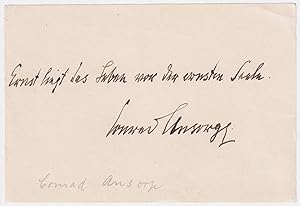 Ernst liegt das Leben vor der ernsten Seele.
Conrad Ansorge
Conrad Ansorge